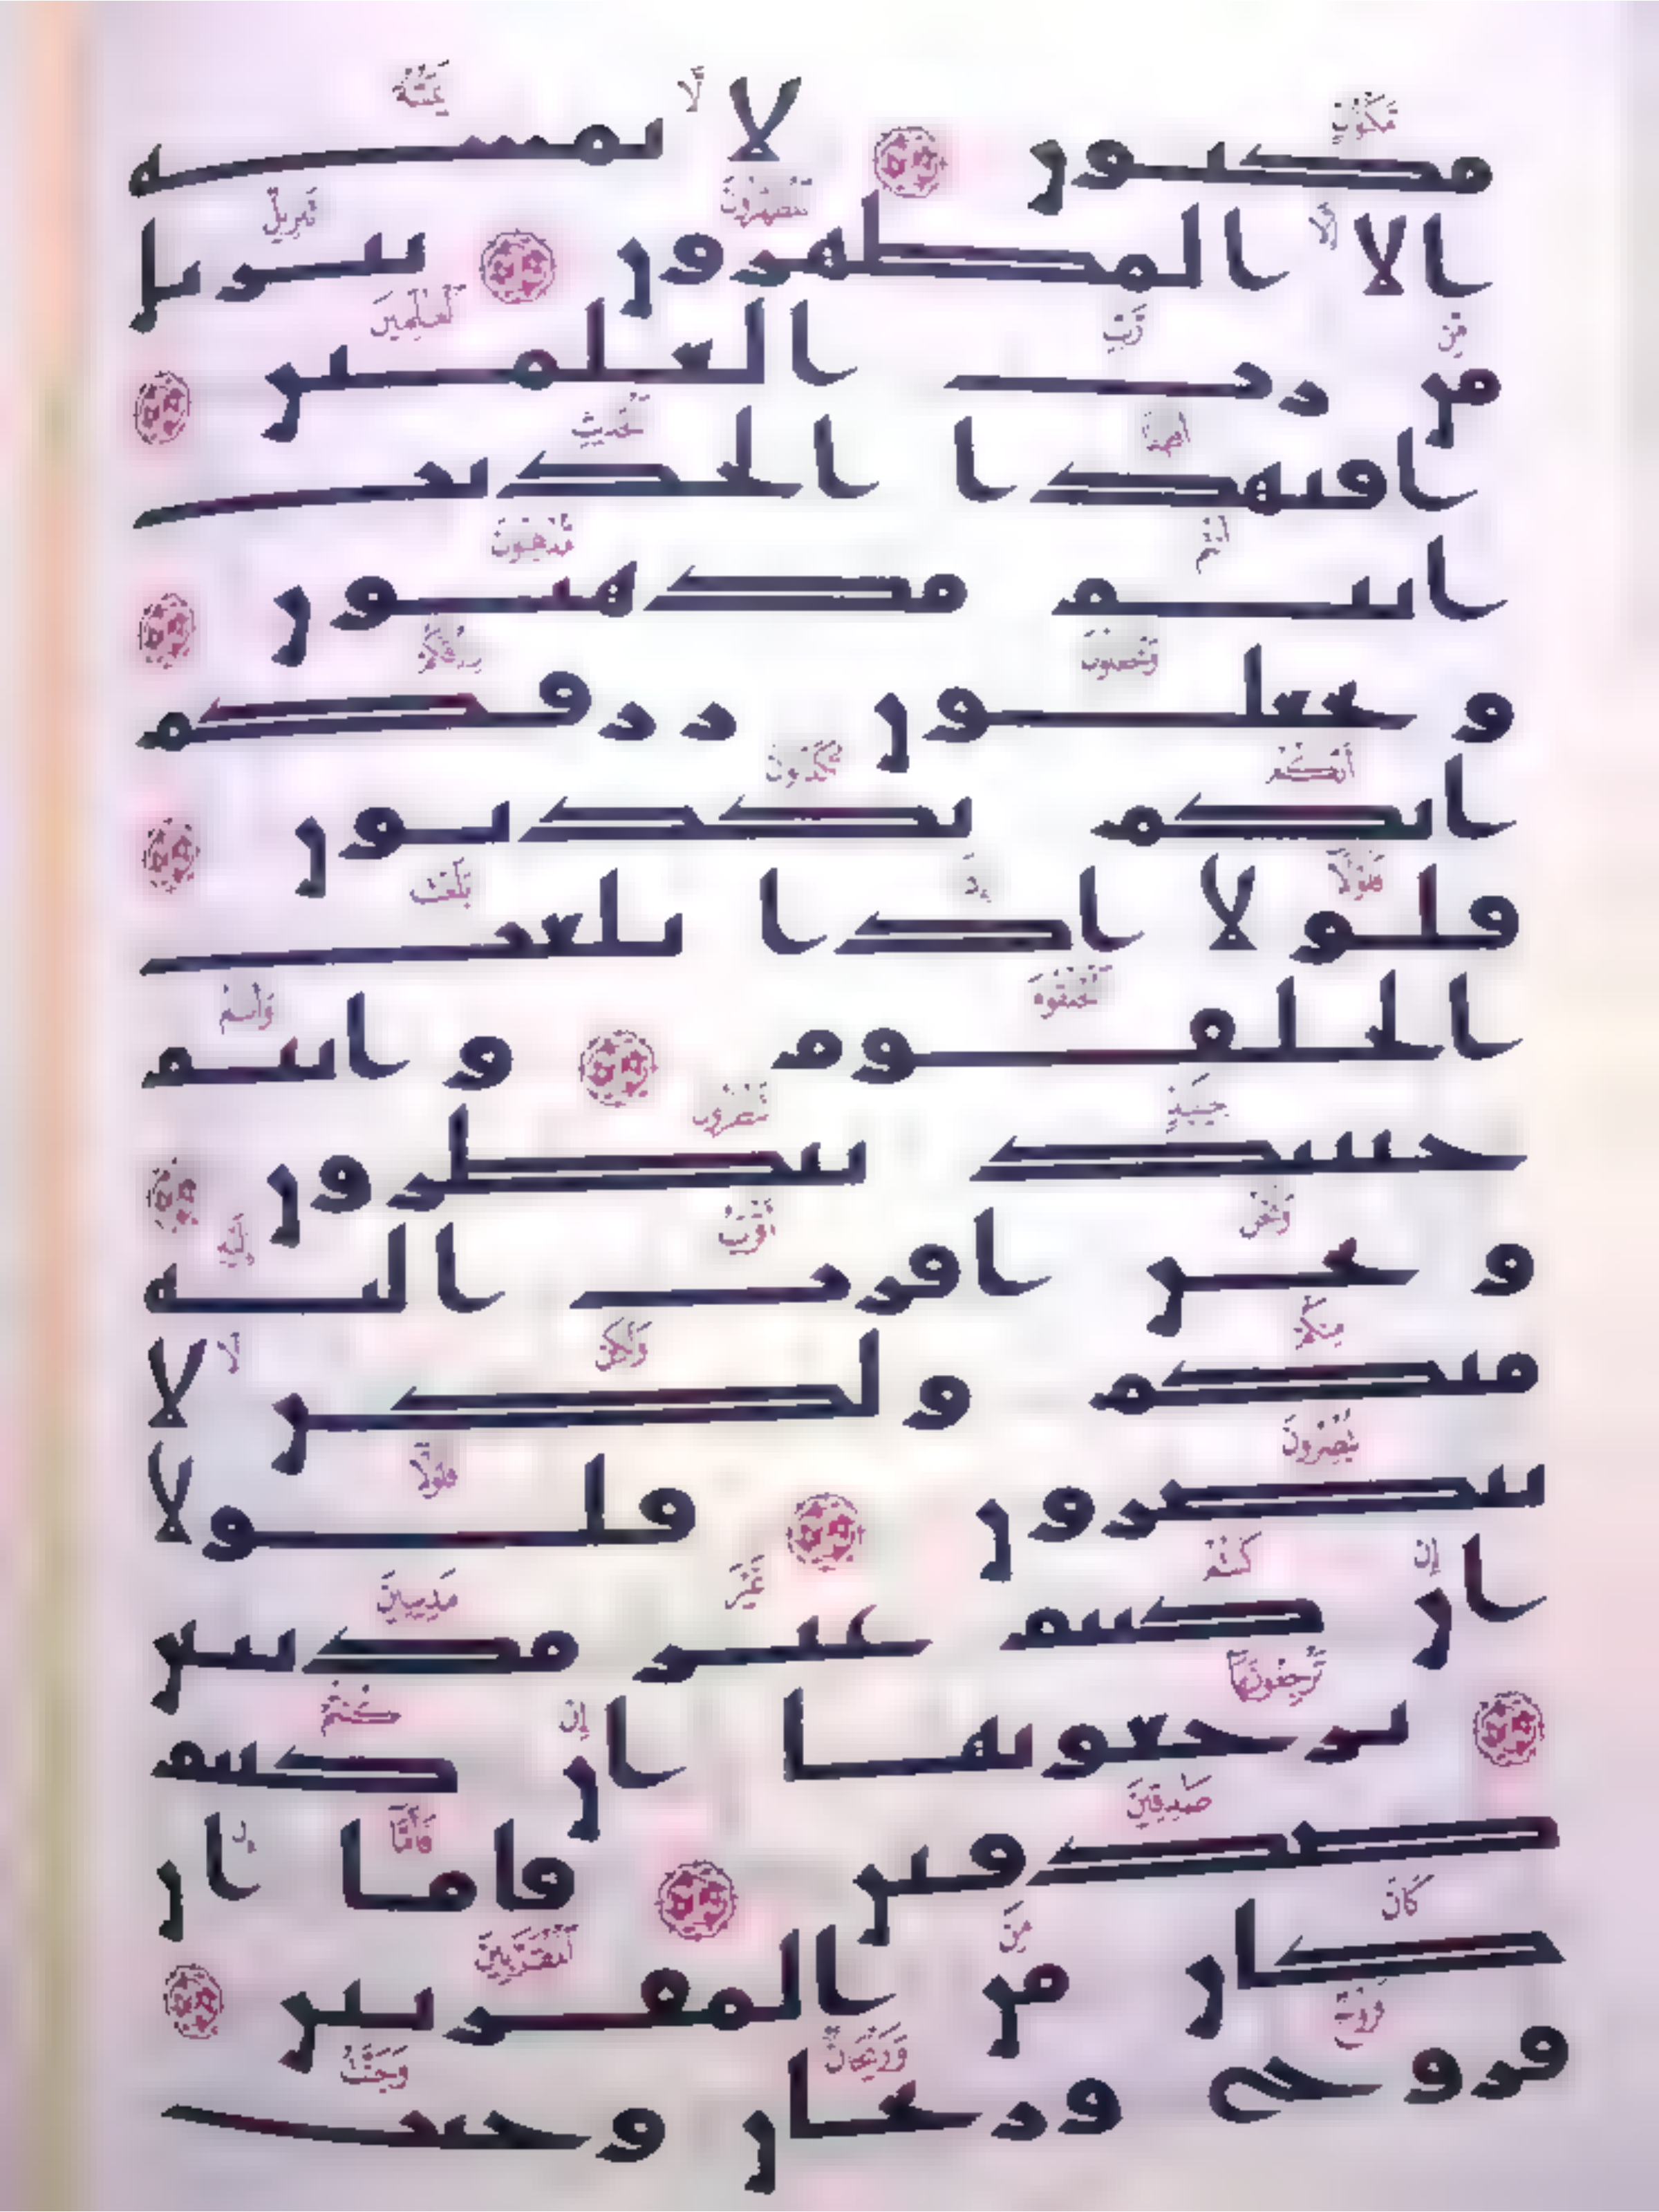 مكنون لا يمسه
الا المطهرون تنزيل
من رب العلمين
افبهذا الحديث
انتم مدهنون
و تجعلون رزقكم
انكم تكذبون
فلولا اذا بلغت
الحلقوم و انتم
حينئذ تنظرون
و نحن اقرب اليه
منكم ولكن لا
تبصرون فلولا
ان كنتم غير مدينين
ترجعونها ان كنتم
صدقين فاما ان
كان من المقربين
فروح وريحان وجنت